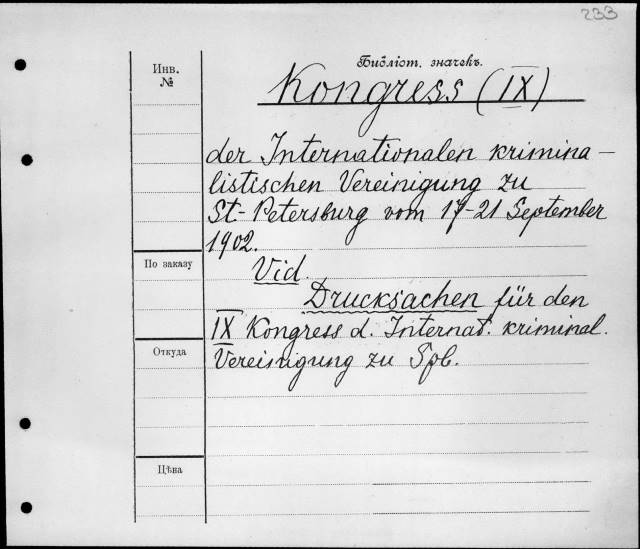 233
Библіот. значекъ.
Инв.
№
Kongress (IX)
der Internationalen krimina-
listischen Vereinigung zu
St-Petersburg vom 17-21 September
1902.
По заказу
Vid.
Drucksachen für den
IX Kongress d. Internat. kriminal.
Откуда
Vereinigung zu Spb.
Цѣна